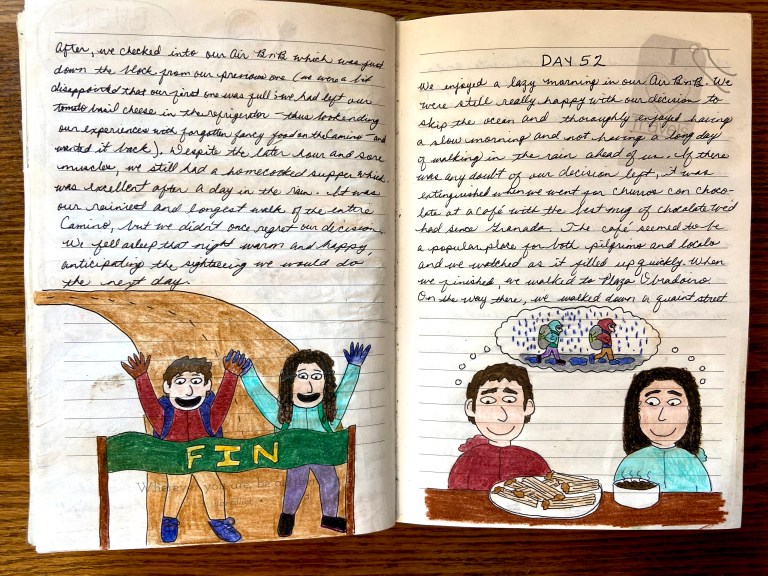 After, we checked into our Air BnB which was just
down the block from our previous one (we were a bit
disappointed that our first one was full: we had left our
tomato basil cheese in the refrigerator - thus bookending
our experiences with forgotten fancy food on the Camino - and
wanted it back). Despite the later hour and sore
muscles, we still had a homecooked supper which
was excellent after a day in the rain. It was
our rainiest and longest walk of the entire
Camino, but we didn't once regret our decision.
We fell asleep that night warm and happy,
anticipating the sightseeing we would do
the next day.
FIN
DAY 52
We enjoyed a lazy morning in our Air BnB. We
were still really happy with our decision to
skip the ocean and thoroughly enjoyed having
a slow morning and not having a long day
of walking in the rain ahead of us. If there
was any doubt of our decision left, it was
extinguished when we went for churros con choco-
late at a café with the best mug of chocolate we'd
had since Granada. The café seemed to be
a popular place for both pilgrims and locals
and we watched as it filled up quickly. When
we finished, we walked to Plaza Obradoiro.
On the way there, we walked down a quaint street